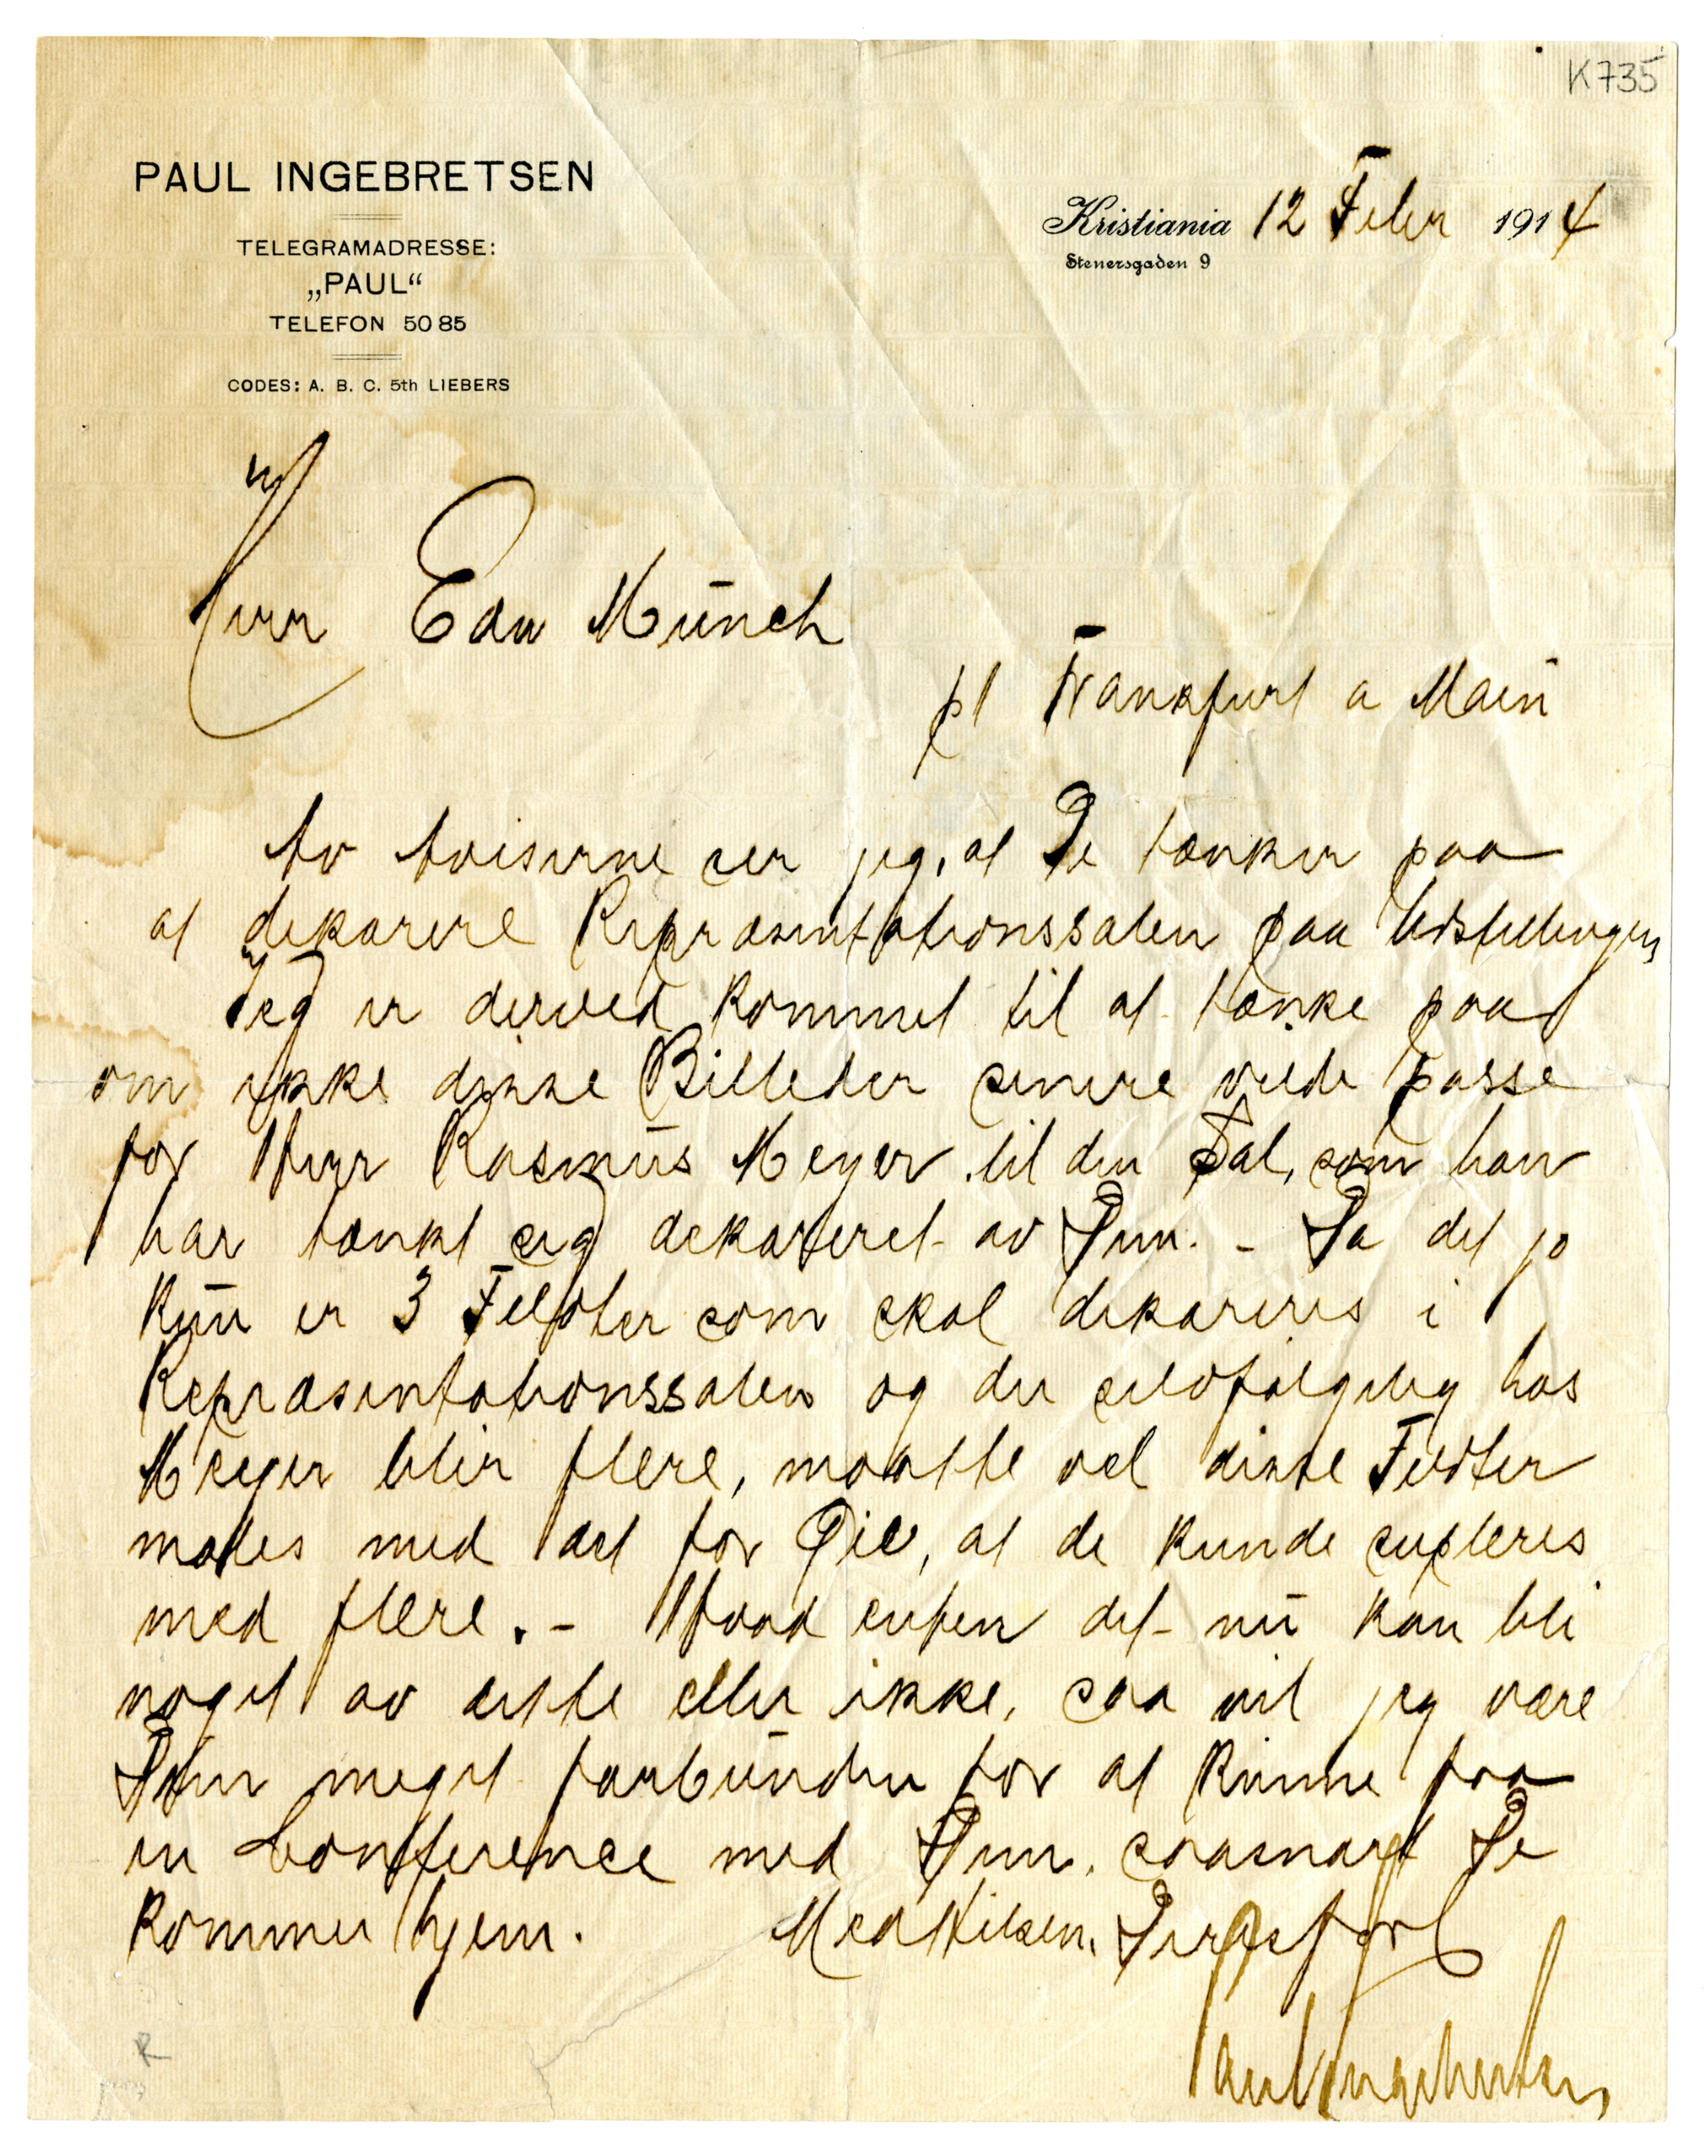 K735
PAUL INGEBRETSEN
TELEGRAMADRESSE:
„PAUL“
TELEFON 5085
CODES: A. B. C. 5th LIEBERS
Kristiania 12 Febr 1914
Stenersgaden 9
Herr Edv Münch
pt Frankfurt a Main
Av Aviserne ser jeg, at De tænker paa
at dekorere Repræsentationssalen paa Udstillingen,
Jeg er derved kommet til at tænke paa
om ikke disse Billeder senere vilde passe
for Herr Rasmus Meyer til den Sal, som han
har tænkt sig dekoreret av Dem. - Da det jo
kun er 3 Feldter som skal dekoreres i
Repræsentationssalen og der selvfølgelig hos
Meyer blir flere, maatte vel disse Feldter
males med det for Øie, at de kunde supleres
med flere. - Hvad enten det nu kan bli
noget av dette eller ikke, saa vil jeg være
Dem meget forbunden for at kunne faa
en Conference med Dem, saasnart De
kommer hjem. Med Hilsen, Deres forb
Paul Ingebretsen,
R